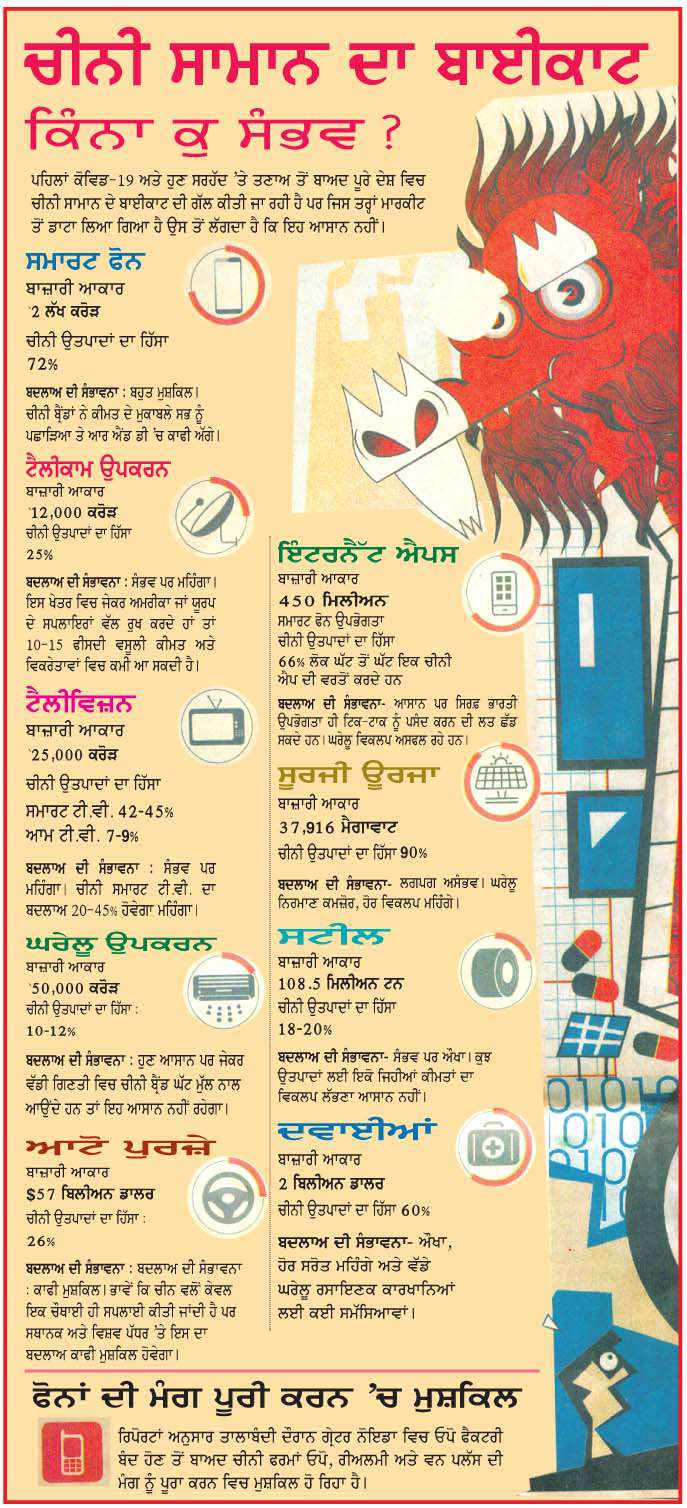 ਚੀਨੀ ਸਾਮਾਨ ਦਾ ਬਾਈਕਾਟ
ਕਿੰਨਾ ਕੁ ਸੰਭਵ ?
ਪਹਿਲਾਂ ਕੋਵਿਡ-19 ਅਤੇ ਹੁਣ ਸਰਹੱਦ 'ਤੇ ਤਣਾਅ ਤੋਂ ਬਾਅਦ ਪੂਰੇ ਦੇਸ਼ ਵਿਚ
ਚੀਨੀ ਸਾਮਾਨ ਦੇ ਬਾਈਕਾਟ ਦੀ ਗੱਲ ਕੀਤੀ ਜਾ ਰਹੀ ਹੈ ਪਰ ਜਿਸ ਤਰ੍ਹਾਂ ਮਾਰਕੀਟ
ਤੋਂ ਡਾਟਾ ਲਿਆ ਗਿਆ ਹੈ ਉਸ ਤੋਂ ਲੱਗਦਾ ਹੈ ਕਿ ਇਹ ਆਸਾਨ ਨਹੀਂ।
ਸਮਾਰਟ ਫੋਨ
ਬਾਜ਼ਾਰੀ ਆਕਾਰ
`2 ਲੱਖ ਕਰੋੜ
ਚੀਨੀ ਉਤਪਾਦਾਂ ਦਾ ਹਿੱਸਾ
72%
ਬਦਲਾਅ ਦੀ ਸੰਭਾਵਨਾ : ਬਹੁਤ ਮੁਸ਼ਕਿਲ।
ਚੀਨੀ ਬ੍ਰੈਂਡਾਂ ਨੇ ਕੀਮਤ ਦੇ ਮੁਕਾਬਲੇ ਸਭ ਨੂੰ
ਪਛਾੜਿਆ ਤੇ ਆਰ ਐਂਡ ਡੀ 'ਚ ਕਾਫੀ ਅੱਗੇ।
ਟੈਲੀਕਾਮ ਉਪਕਰਨ
ਬਾਜ਼ਾਰੀ ਆਕਾਰ
`12,000 ਕਰੋੜ
ਚੀਨੀ ਉਤਪਾਦਾਂ ਦਾ ਹਿੱਸਾ
25%
ਬਦਲਾਅ ਦੀ ਸੰਭਾਵਨਾ : ਸੰਭਵ ਪਰ ਮਹਿੰਗਾ।
ਇਸ ਖੇਤਰ ਵਿਚ ਜੇਕਰ ਅਮਰੀਕਾ ਜਾਂ ਯੂਰਪ
ਦੇ ਸਪਲਾਇਰਾਂ ਵੱਲ ਰੁਖ ਕਰਦੇ ਹਾਂ ਤਾਂ
10-15 ਫੀਸਦੀ ਵਸੂਲੀ ਕੀਮਤ ਅਤੇ
ਵਿਕਰੇਤਾਵਾਂ ਵਿਚ ਕਮੀ ਆ ਸਕਦੀ ਹੈ।
ਟੈਲੀਵਿਜ਼ਨ
ਬਾਜ਼ਾਰੀ ਆਕਾਰ
`25,000 ਕਰੋੜ
ਚੀਨੀ ਉਤਪਾਦਾਂ ਦਾ ਹਿੱਸਾ
ਸਮਾਰਟ ਟੀ.ਵੀ. 42-45%
ਆਮ ਟੀ.ਵੀ. 7-9%
ਬਦਲਾਅ ਦੀ ਸੰਭਾਵਨਾ : ਸੰਭਵ ਪਰ
ਮਹਿੰਗਾ। ਚੀਨੀ ਸਮਾਰਟ ਟੀ.ਵੀ. ਦਾ
ਬਦਲਾਅ 20-45% ਹੋਵੇਗਾ ਮਹਿੰਗਾ।
ਘਰੇਲੂ ਉਪਕਰਨ
ਬਾਜ਼ਾਰੀ ਆਕਾਰ
`50,000 ਕਰੋੜ
ਚੀਨੀ ਉਤਪਾਦਾਂ ਦਾ ਹਿੱਸਾ :
10-12%
ਬਦਲਾਅ ਦੀ ਸੰਭਾਵਨਾ : ਹੁਣ ਆਸਾਨ ਪਰ ਜੇਕਰ
ਵੱਡੀ ਗਿਣਤੀ ਵਿਚ ਚੀਨੀ ਬ੍ਰੈਂਡ ਘੱਟ ਮੁੱਲ ਨਾਲ
ਆਉਂਦੇ ਹਨ ਤਾਂ ਇਹ ਆਸਾਨ ਨਹੀਂ ਰਹੇਗਾ।
ਆਟੋ ਪੁਰਜ਼ੇ
ਬਾਜ਼ਾਰੀ ਆਕਾਰ
$57 ਬਿਲੀਅਨ ਡਾਲਰ
ਚੀਨੀ ਉਤਪਾਦਾਂ ਦਾ ਹਿੱਸਾ :
26%
ਬਦਲਾਅ ਦੀ ਸੰਭਾਵਨਾ : ਬਦਲਾਅ ਦੀ ਸੰਭਾਵਨਾ
: ਕਾਫੀ ਮੁਸ਼ਕਿਲ। ਭਾਵੇਂ ਕਿ ਚੀਨ ਵਲੋਂ ਕੇਵਲ
ਇਕ ਚੌਥਾਈ ਹੀ ਸਪਲਾਈ ਕੀਤੀ ਜਾਂਦੀ ਹੈ ਪਰ
ਸਥਾਨਕ ਅਤੇ ਵਿਸ਼ਵ ਪੱਧਰ 'ਤੇ ਇਸ ਦਾ
ਬਦਲਾਅ ਕਾਫੀ ਮੁਸ਼ਕਿਲ ਹੋਵੇਗਾ।
ਇੰਟਰਨੈੱਟ ਐਪਸ
ਬਾਜ਼ਾਰੀ ਆਕਾਰ
450 ਮਿਲੀਅਨ
ਸਮਾਰਟ ਫੋਨ ਉਪਭੋਗਤਾ
ਚੀਨੀ ਉਤਪਾਦਾਂ ਦਾ ਹਿੱਸਾ
66% ਲੋਕ ਘੱਟ ਤੋਂ ਘੱਟ ਇਕ ਚੀਨੀ
ਐਪ ਦੀ ਵਰਤੋਂ ਕਰਦੇ ਹਨ
ਬਦਲਾਅ ਦੀ ਸੰਭਾਵਨਾ- ਆਸਾਨ ਪਰ ਸਿਰਫ਼ ਭਾਰਤੀ
ਉਪਭੋਗਤਾ ਹੀ ਟਿਕ-ਟਾਕ ਨੂੰ ਪਸੰਦ ਕਰਨ ਦੀ ਲਤ ਛੱਡ
ਸਕਦੇ ਹਨ। ਘਰੇਲੂ ਵਿਕਲਪ ਅਸਫਲ ਰਹੇ ਹਨ।
ਸੂਰਜੀ ਊਰਜਾ
ਬਾਜ਼ਾਰੀ ਆਕਾਰ
37,916 ਮੈਗਾਵਾਟ
ਚੀਨੀ ਉਤਪਾਦਾਂ ਦਾ ਹਿੱਸਾ 90%
ਬਦਲਾਅ ਦੀ ਸੰਭਾਵਨਾ- ਲਗਪਗ ਅਸੰਭਵ। ਘਰੇਲੂ
ਨਿਰਮਾਣ ਕਮਜ਼ੋਰ, ਹੋਰ ਵਿਕਲਪ ਮਹਿੰਗੇ।
ਸਟੀਲ
ਬਾਜ਼ਾਰੀ ਆਕਾਰ
108.5 ਮਿਲੀਅਨ ਟਨ
ਚੀਨੀ ਉਤਪਾਦਾਂ ਦਾ ਹਿੱਸਾ
18-20%
ਬਦਲਾਅ ਦੀ ਸੰਭਾਵਨਾ- ਸੰਭਵ ਪਰ ਔਖਾ। ਕੁਝ
ਉਤਪਾਦਾਂ ਲਈ ਇਕੋ ਜਿਹੀਆਂ ਕੀਮਤਾਂ ਦਾ
ਵਿਕਲਪ ਲੱਭਣਾ ਆਸਾਨ ਨਹੀਂ।
ਦਵਾਈਆਂ
ਬਾਜ਼ਾਰੀ ਆਕਾਰ
2 ਬਿਲੀਅਨ ਡਾਲਰ
ਚੀਨੀ ਉਤਪਾਦਾਂ ਦਾ ਹਿੱਸਾ 60%
ਬਦਲਾਅ ਦੀ ਸੰਭਾਵਨਾ- ਔਖਾ,
ਹੋਰ ਸਰੋਤ ਮਹਿੰਗੇ ਅਤੇ ਵੱਡੇ
ਘਰੇਲੂ ਰਸਾਇਣਕ ਕਾਰਖਾਨਿਆਂ
ਲਈ ਕਈ ਸਮੱਸਿਆਵਾਂ।
ਫੋਨਾਂ ਦੀ ਮੰਗ ਪੂਰੀ ਕਰਨ 'ਚ ਮੁਸ਼ਕਿਲ
ਰਿਪੋਰਟਾਂ ਅਨੁਸਾਰ ਤਾਲਾਬੰਦੀ ਦੌਰਾਨ ਗ੍ਰੇਟਰ ਨੋਇਡਾ ਵਿਚ ਓਪੋ ਫੈਕਟਰੀ
ਬੰਦ ਹੋਣ ਤੋਂ ਬਾਅਦ ਚੀਨੀ ਫਰਮਾਂ ਓਪੋ, ਰੀਅਲਮੀ ਅਤੇ ਵਨ ਪਲੱਸ ਦੀ
ਮੰਗ ਨੂੰ ਪੂਰਾ ਕਰਨ ਵਿਚ ਮੁਸ਼ਕਿਲ ਹੋ ਰਿਹਾ ਹੈ।